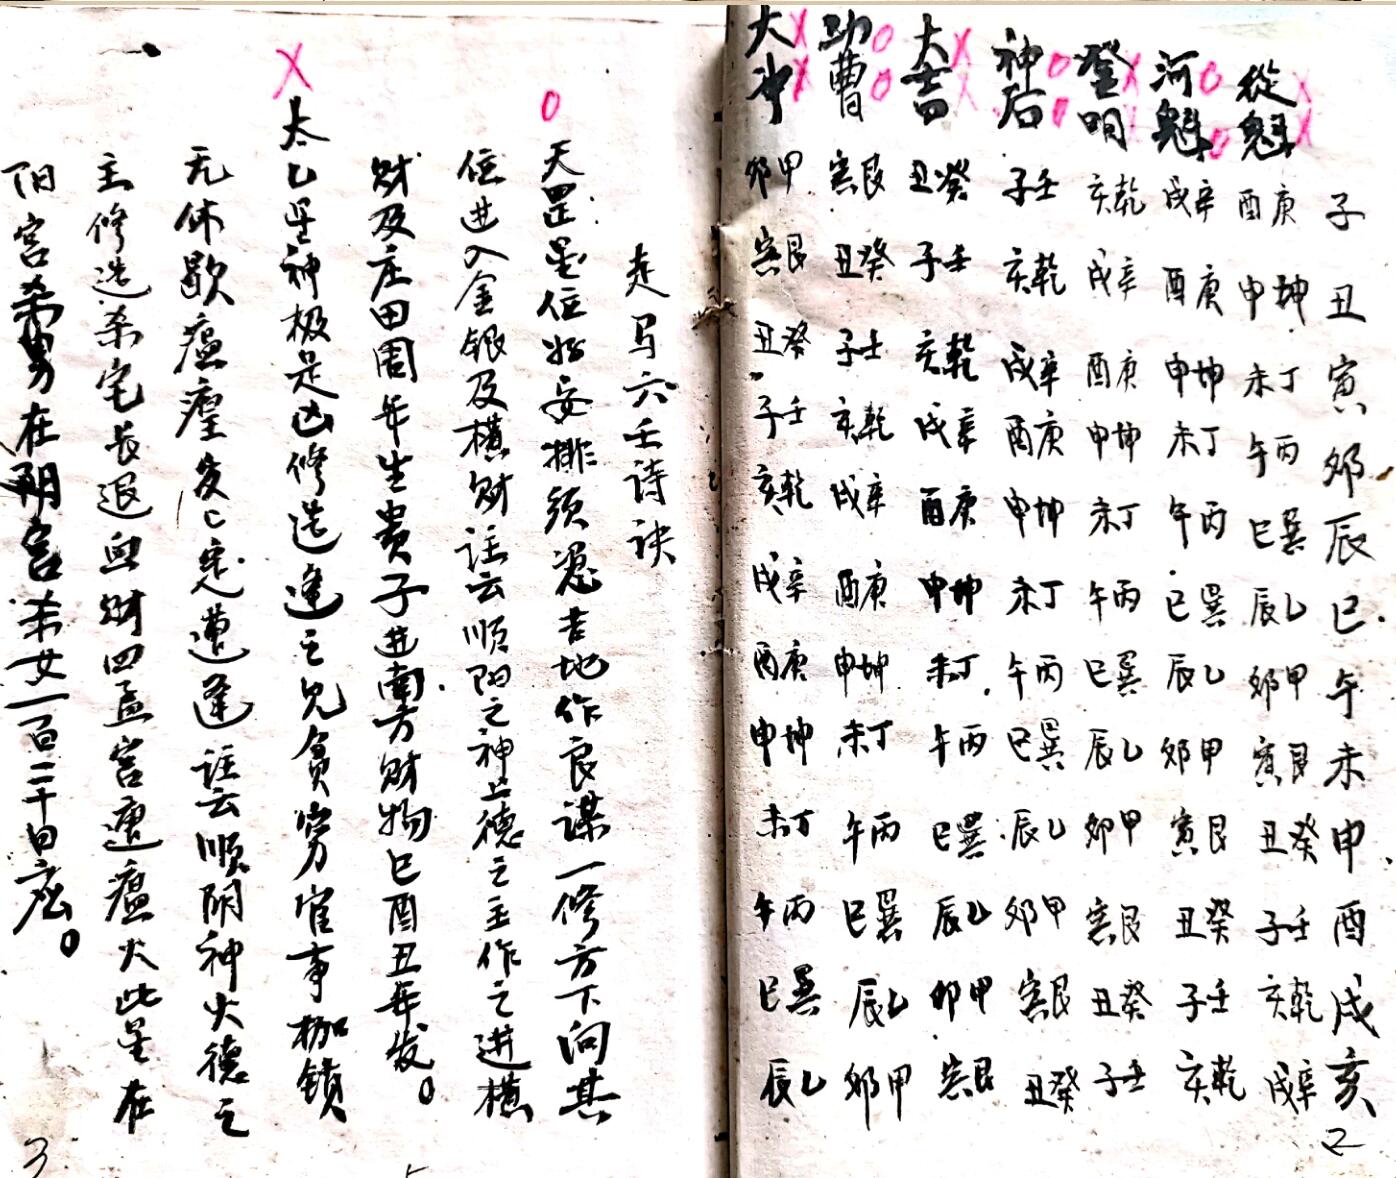 子 丑 寅 卯 辰 巳 午 未 申 酉 戌 亥
從魁 酉庚 申坤 未丁 午丙 巳巽 辰乙 卯甲 寅艮 丑癸 子壬 亥乾 戌辛
河魁 戌辛 酉庚 申坤 未丁 午丙 巳巽 辰乙 卯甲 寅艮 丑癸 子壬 亥乾
登明 亥乾 戌辛 酉庚 申坤 未丁 午丙 巳巽 辰乙 卯甲 寅艮 丑癸 子壬
神后 子壬 亥乾 戌辛 酉庚 申坤 未丁 午丙 巳巽 辰乙 卯甲 寅艮 丑癸
大吉 丑癸 子壬 亥乾 戌辛 酉庚 申坤 未丁 午丙 巳巽 辰乙 卯甲 寅艮
功曹 寅艮 丑癸 子壬 亥乾 戌辛 酉庚 申坤 未丁 午丙 巳巽 辰乙 卯甲
大冲 卯甲 寅艮 丑癸 子壬 亥乾 戌辛 酉庚 申坤 未丁 午丙 巳巽 辰乙
2
走马六壬诗诀
天罡星位好安排须觅吉地作良谋一修方下向其
位进入金银及横财註云顺阳之神上德之主作之进横
财及庄田周年生贵子进南方财物巳酉丑年发。
太乙星神极是凶修造逢之见貧穷官事枷鎖
无休歇瘟瘽发乙定遭逢註云顺阴神火德之
主修造杀宅长退血财四孟宫遭瘟火此星在
阳宫杀男在阴宫杀女一百二十日应。
3